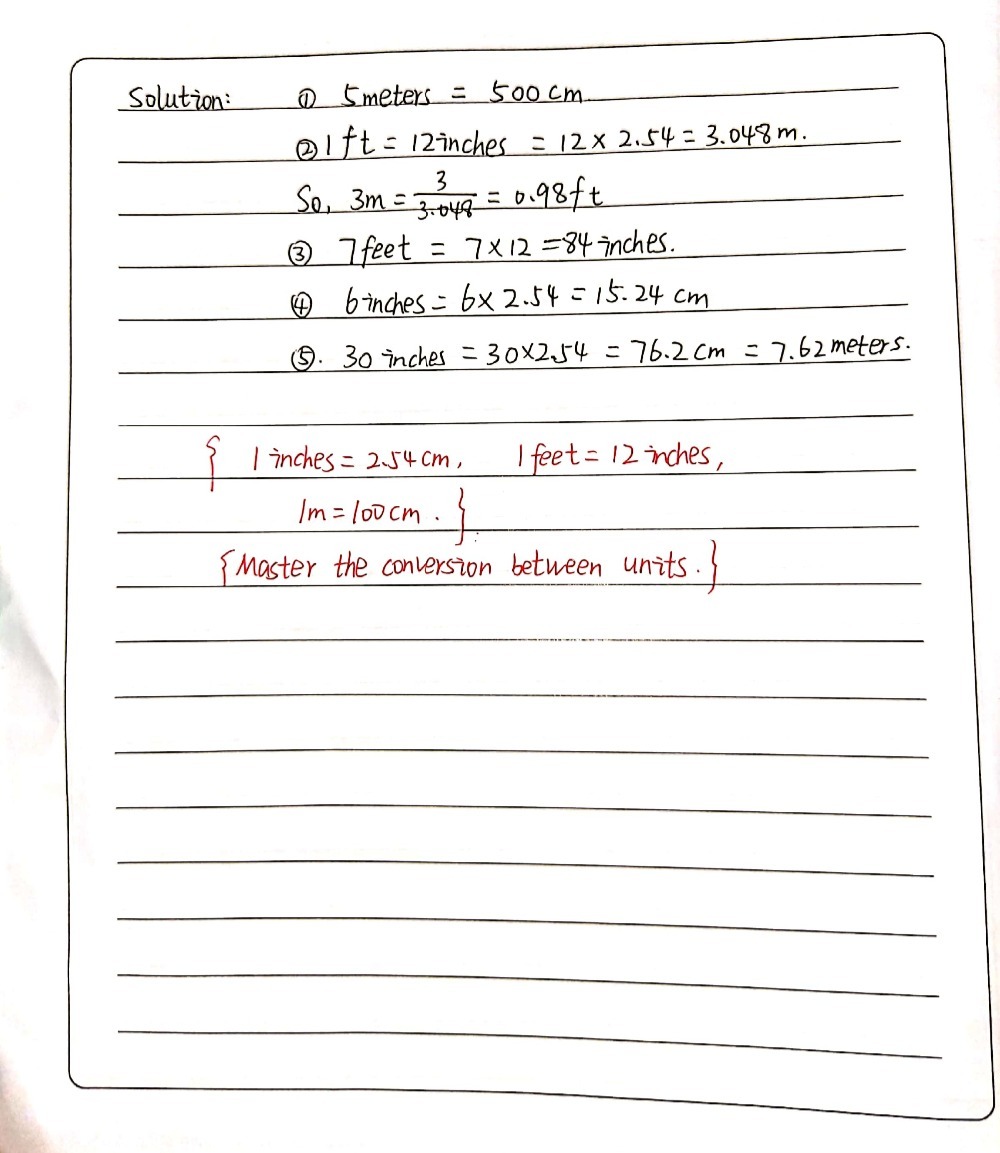 Solution: ① 5meters = 500cm
② 1ft = 12inches = 12 × 2.54 = 3.048m.
So, 3m = 3/3.048 = 0.98ft
③ 7feet = 7×12 =84 inches.
④ 6 inches = 6× 2.54 = 15.24 cm
⑤. 30 inches = 30×2.54 = 76.2cm = 7.62meters.
{ 1 inches = 2.54cm, 1 feet = 12 inches,
1m = 100cm. }
{Master the conversion between units.}